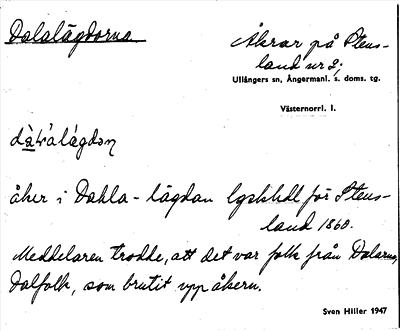 Dalalägdorna
Åkrar på Stens-
land nr 2;
Ullångers sn, Ångermanl. s. doms. tg.
Västernorrl. l.
åker i Dahla-lägdan lgskhdl för Stens-
land 1860.
Meddelaren trodde, att det var folk från Dalarna,
dalfolk, som brutit upp åkern.
Sven Hiller 1947